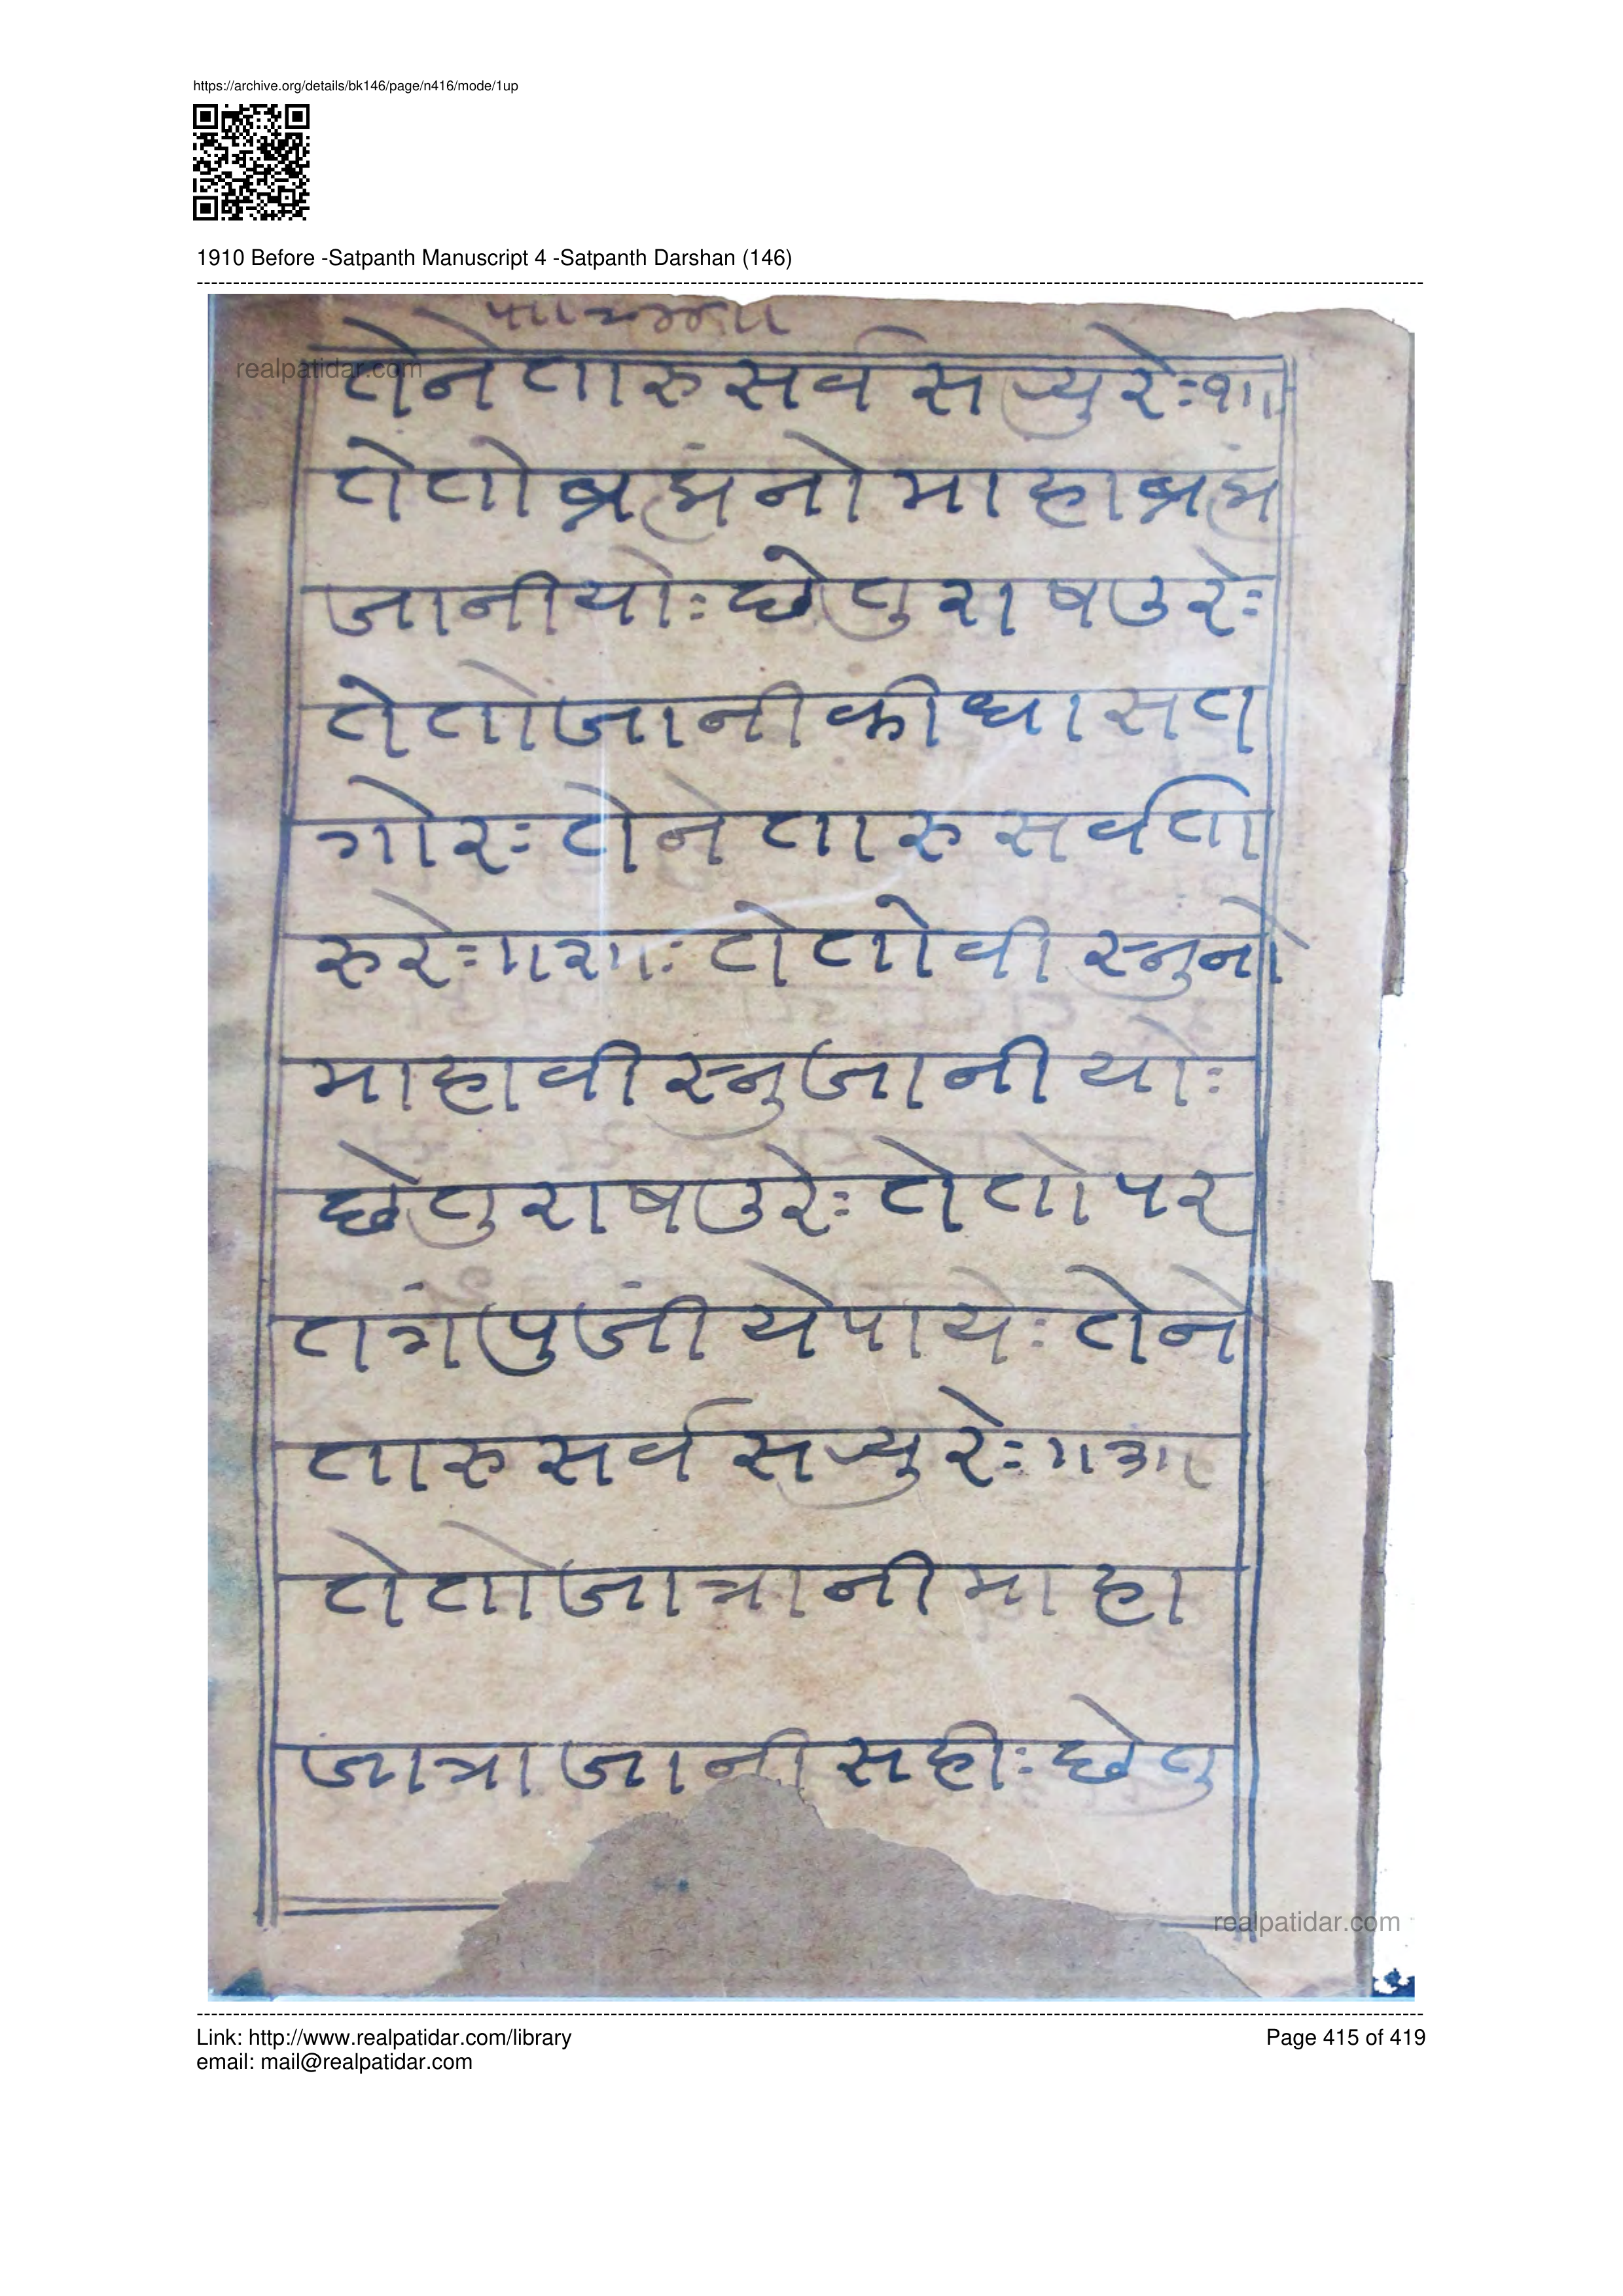 https://archive.org/details/bk146/page/n416/mode/1up
1910 Before -Satpanth Manuscript 4 -Satpanth Darshan (146)
realpatidar.com
तेने तारु सर्व स र्‍यु रेः१॥
तेतो ब्रह्मंनो माहा ब्रह्मं
जानीयोः छे तु राषउ रेः
तेतो जानी की धा सत
गोरः तेने तारु सर्व ता
रु रेः॥२॥ः तेतो वीस्नुनो
माहावीस्नु जानी योः
छे तु राषउ रेः तेतो पर
तग पुजी ये पायेः तेने
तारु सर्व स र्‍यु रेः॥३॥
तेतो जात्रानी माहा
जात्रा जानी सहीः छे तु
realpatidar.com
Link: http://www.realpatidar.com/library
Page 415 of 419
email: mail@realpatidar.com